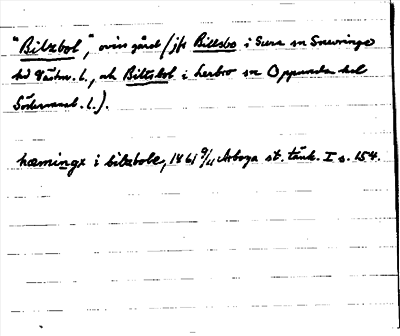 "Bilzbol", oviss gård (jfr Billsbo i Sura sn Snevringe
hd Västm. l., och Biltsbol i Lerbo sn Oppunda hd
Södermanl. l.).
hæmingx i bilzbole, 1461 9/11 Arboga st. tänk. I s. 154.